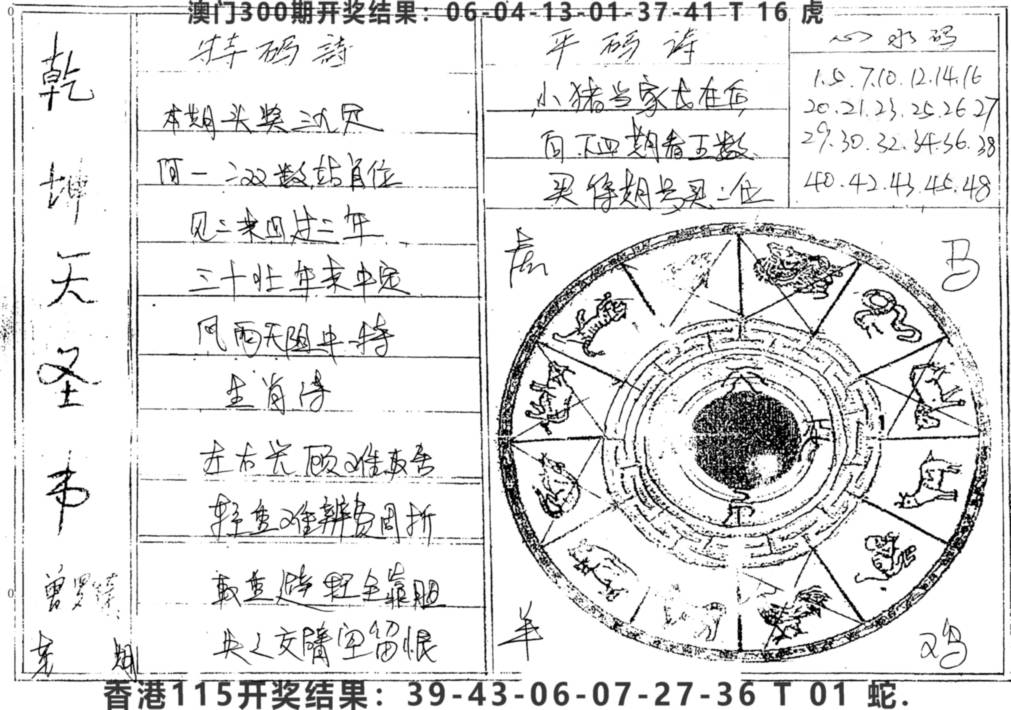 澳门300期开奖结果：06-04-13-01-37-41 T 16 虎
乾坤天圣书
曾
特码詩
本期头奖
一二双数站首位
见三来四过三年
三十壮年来中定
风雨天阻中特
生肖诗
左右兼顾难取舍
轻重难辨费周折
取重避轻全靠胆
失之交臂空留恨
平码诗
小猪当家七在后
百下四期看五数
买二位
心水码
1.5.7.10.12.14.16
20.21.23.25.26.27
29.30.32.34.36.38
40.42.43.45.48
虎
马
羊
鸡
香港115开奖结果：39-43-06-07-27-36 T 01 蛇.